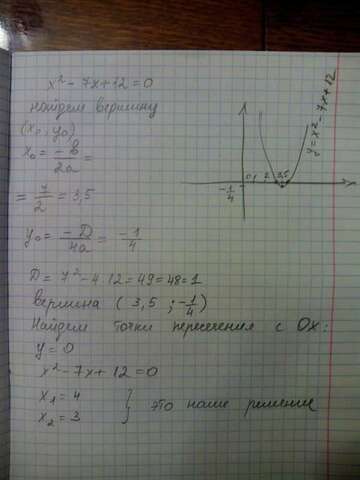 x² - 7x + 12 = 0
найдем вершину
(x₀, y₀)
x₀ = -b/2a =
= 7/2 = 3,5
y₀ = -D/4a = -1/4
D = 7² - 4·12 = 49 = 48 = 1
вершина (3,5 ; -1/4)
Найдем точки пересечения с Ox:
y = 0
x² - 7x + 12 = 0
x₁ = 4
x₂ = 3
} это наше решение
y = x² - 7x + 12
0 1 2 3,5
-1/4